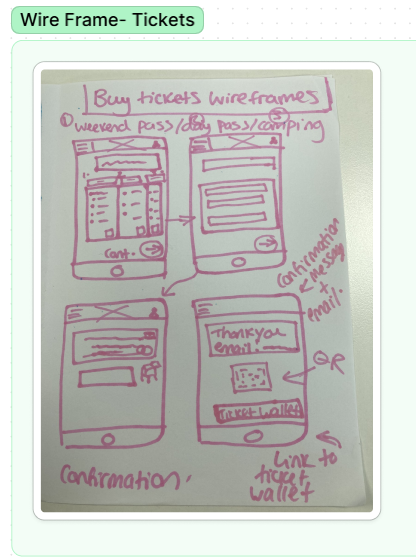 Wire Frame- Tickets
Buy tickets wireframes
① weekend pass/day pass/camping
Cont.
confirmation
message
+
email.
Thankyou
email.
QR
Ticket Wallet
Confirmation
Link to
ticket
wallet